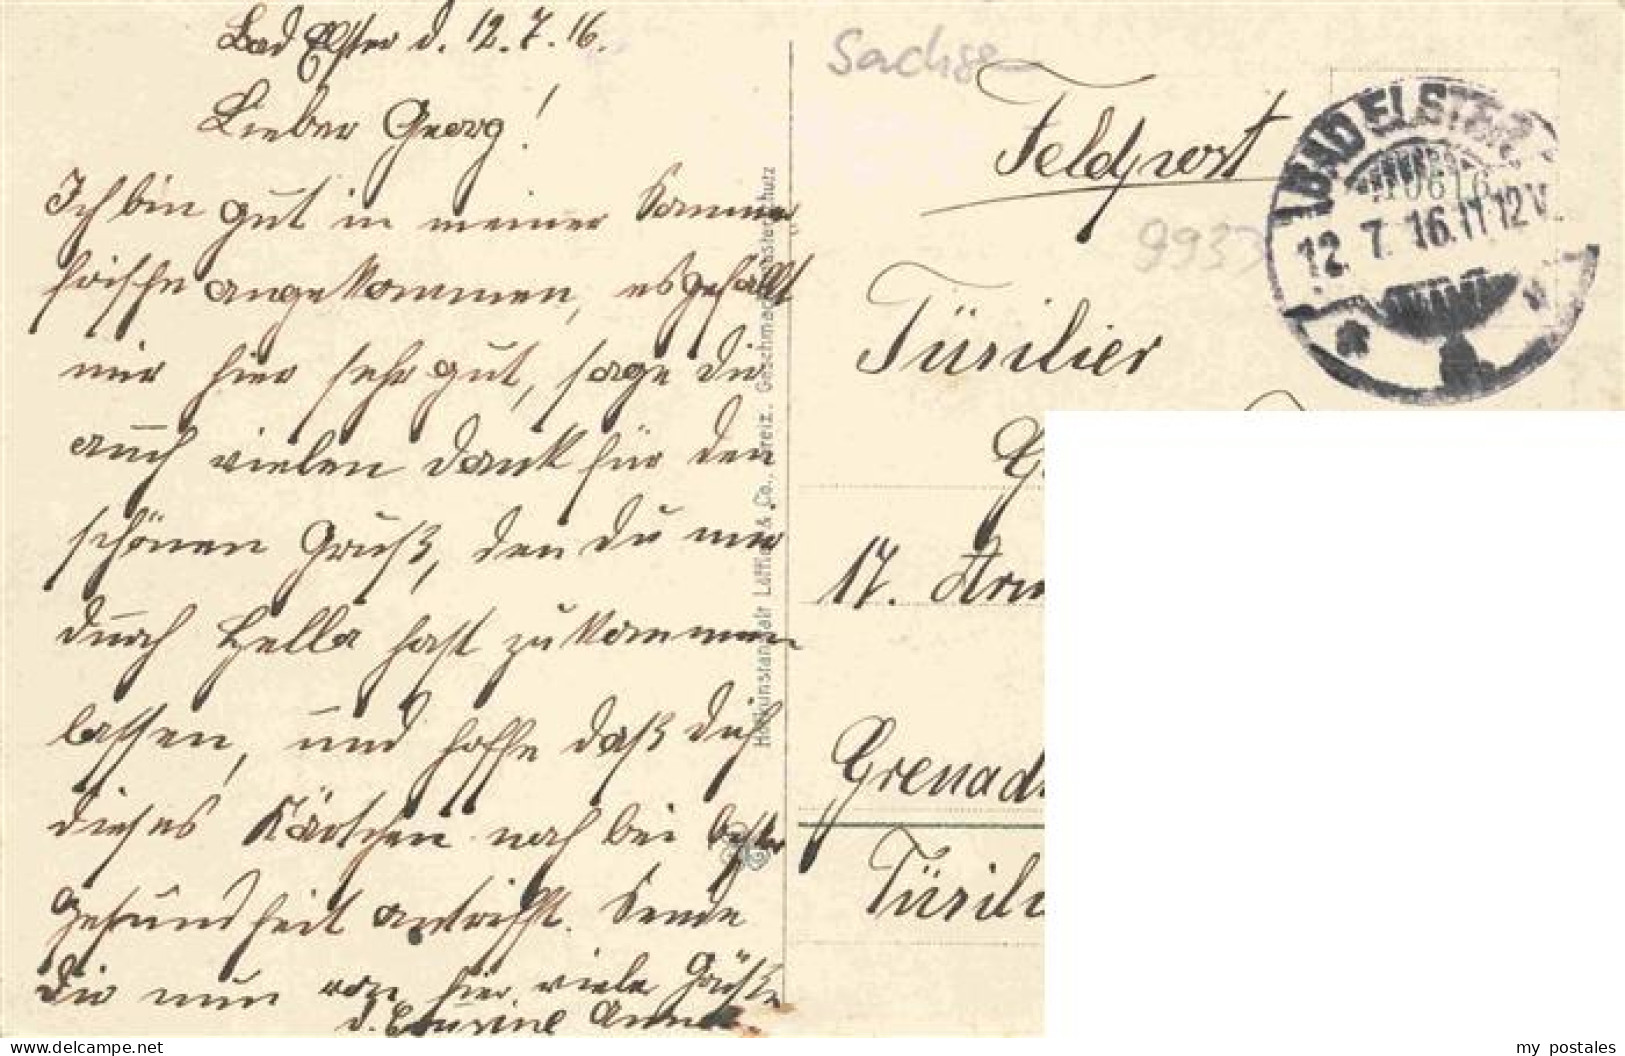 Bad Elster d. 12.7.16.
Lieber Georg!
Ich bin gut in meiner Sommer
frische angekommen, es gefällt
mir hier sehr gut, sage Dir
auch vielen Dank für den
schönen Gruß, den Du mir
durch Hella hast zukommen
lassen, und hoffe daß Dich
dieses Kärtchen noch bei bester
Gesundheit antrifft. Sende
Dir nun von hier viele Grüße
d. Cousine Anna.
Hofkunstanstalt Löffler & Co., Greiz. Geschmacksmusterschutz
Sachse
Feldpost
9933
BAD ELSTER
12. 7. 16. 11-12 V.
Füsilier
17. Arm
Grenad
Füsili
my postales